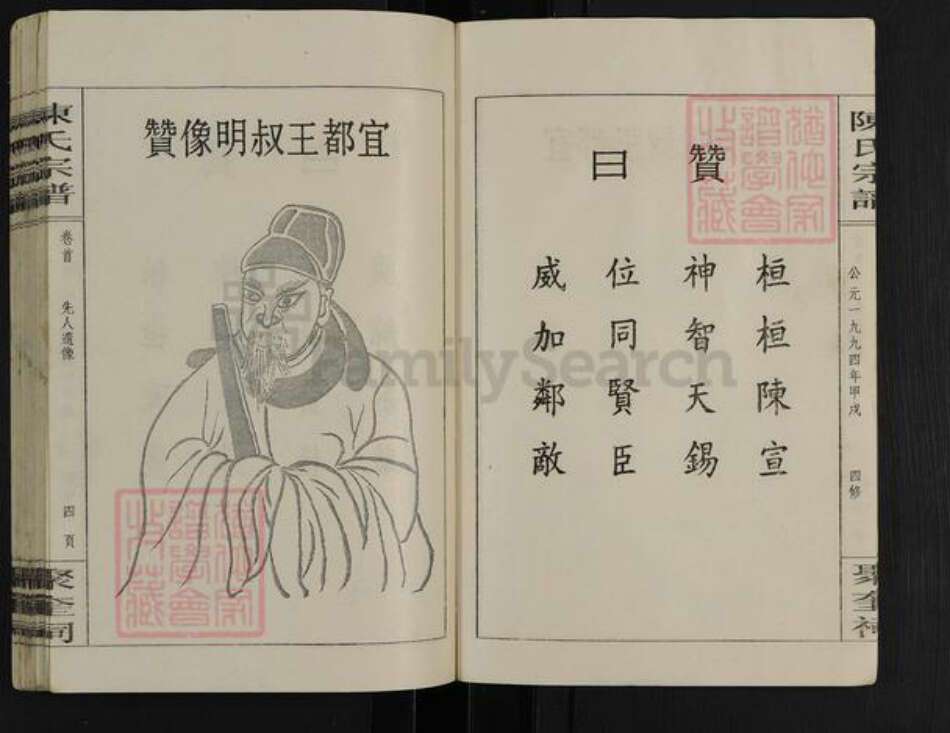 陳氏宗譜
公元一九九四年甲戌
四修
聚奎祠
贊曰
桓桓陳宣
神智天錫
位同賢臣
威加鄰敵
宜都王叔明像贊
陳氏宗譜
卷首
先人遺像
四頁
聚奎祠
FamilySearch